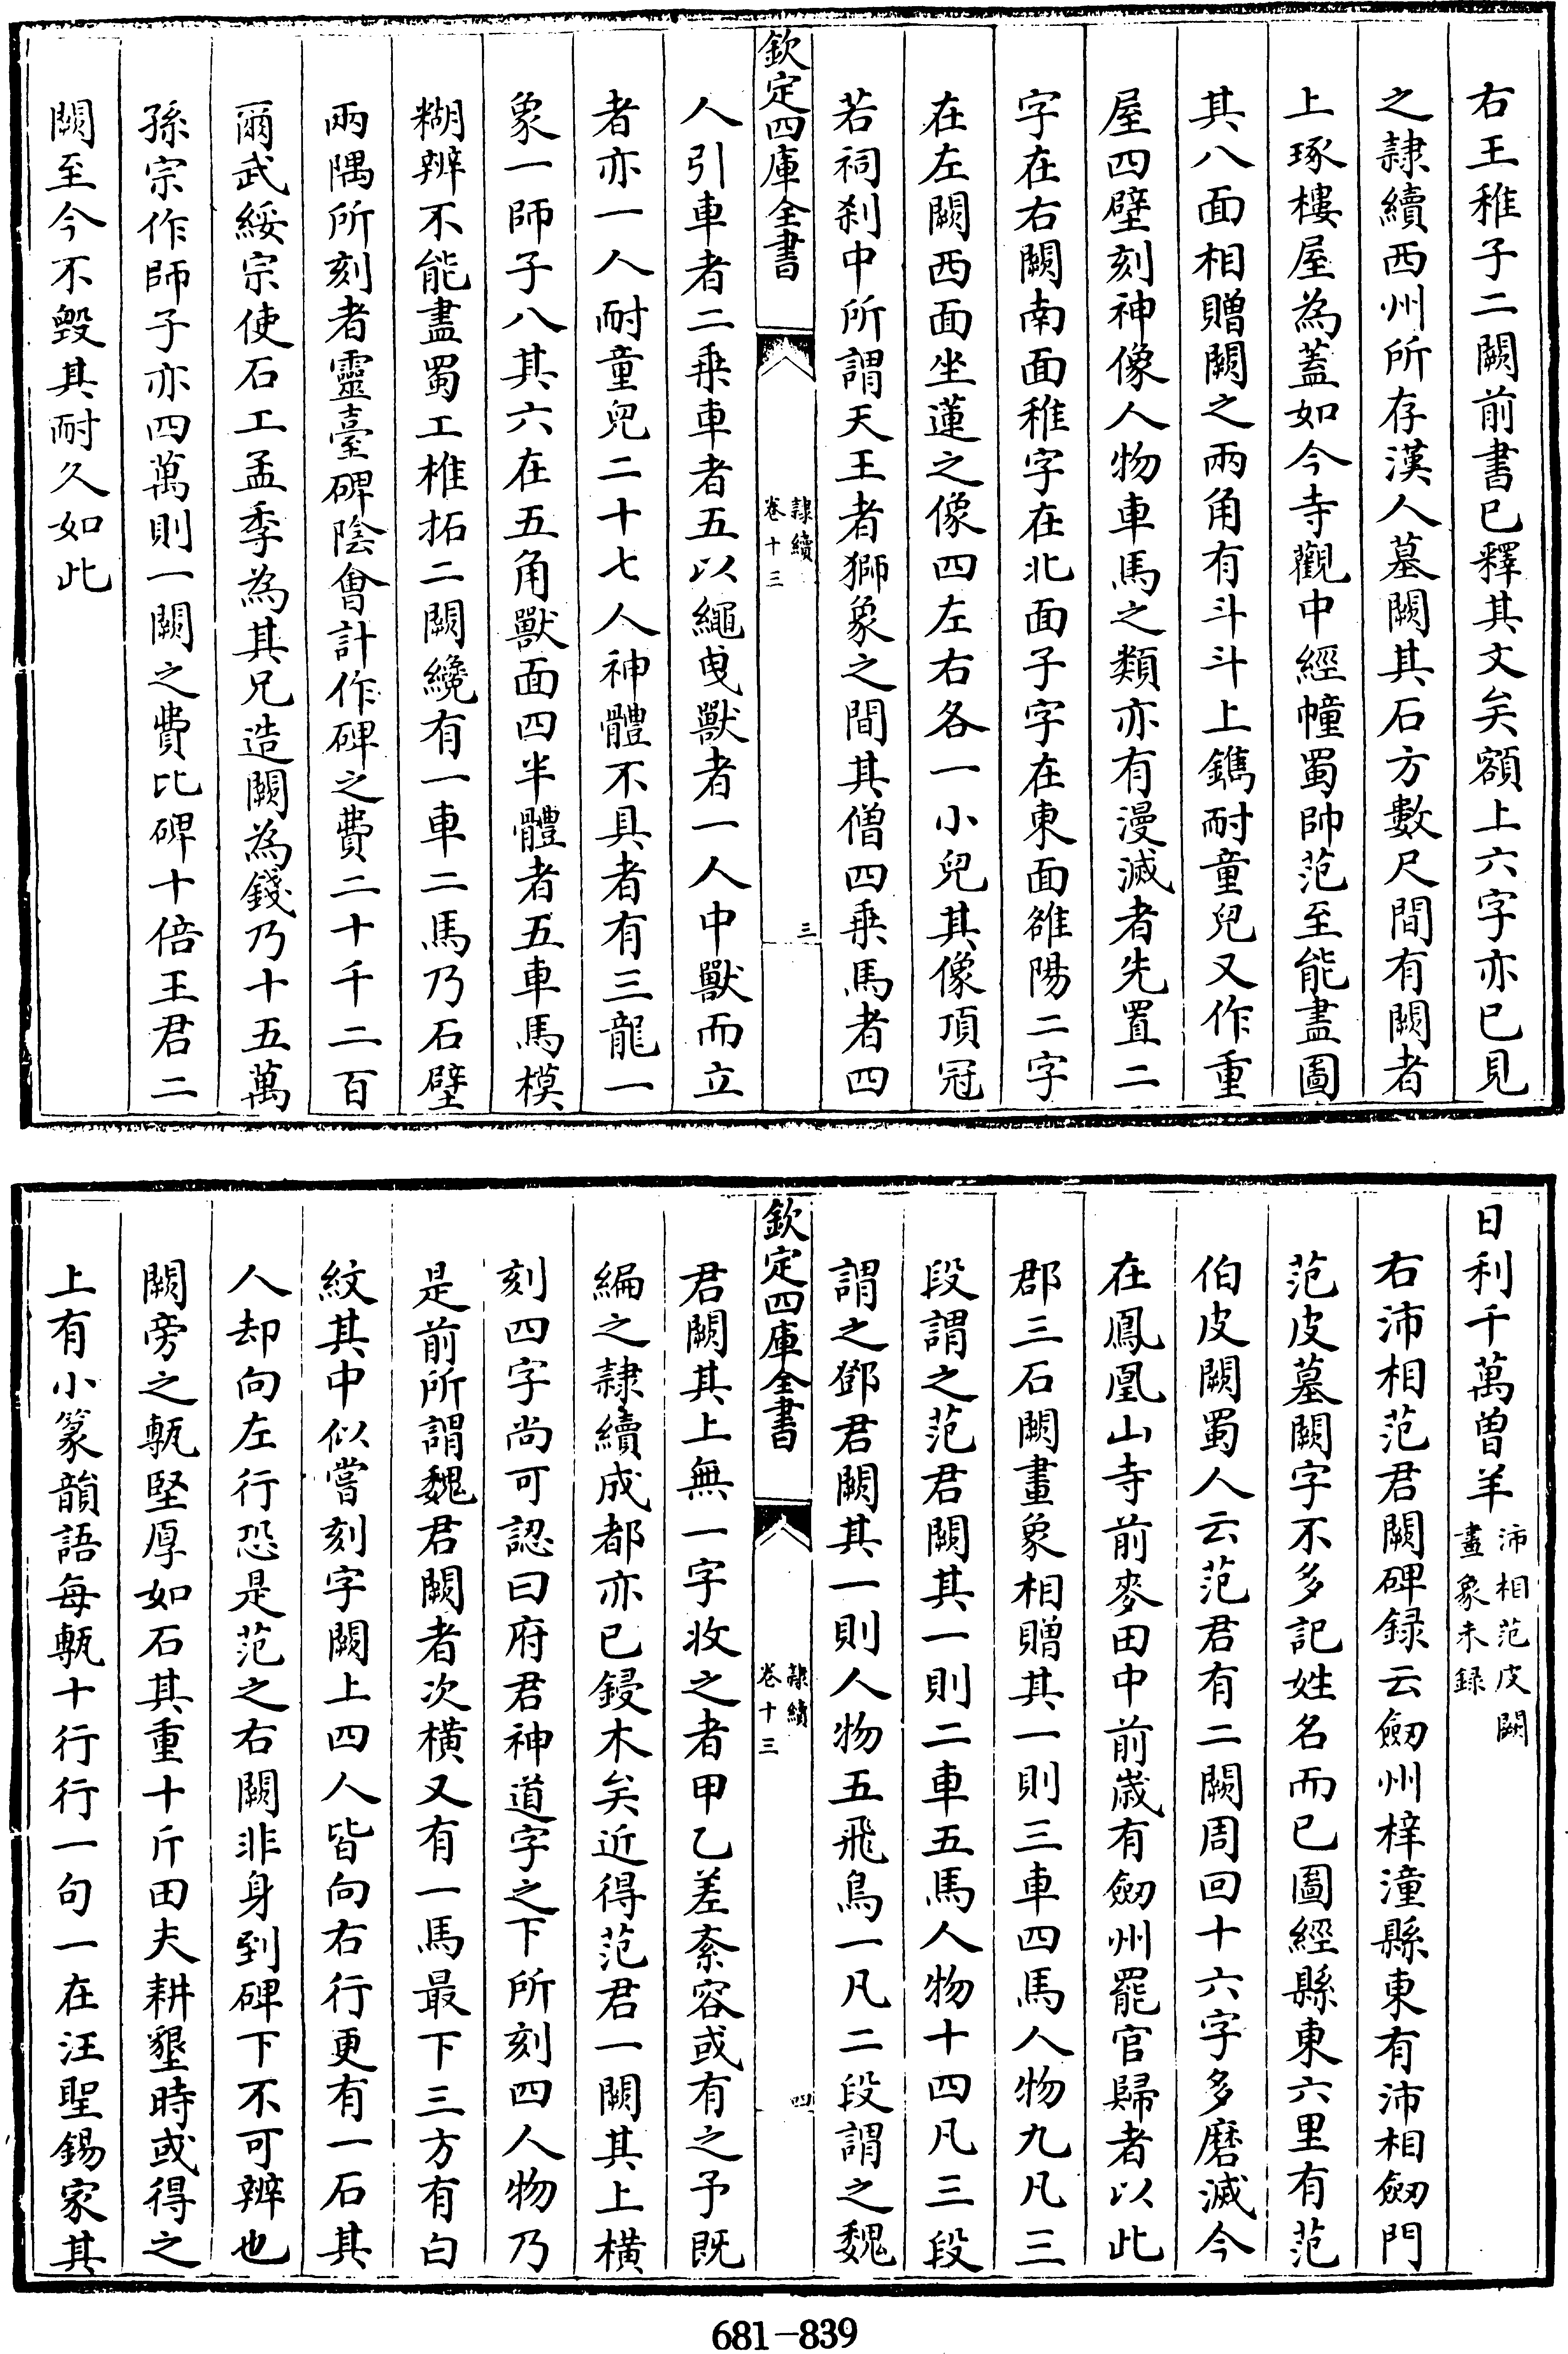 右王稚子二闕前書已釋其文矣額上六字亦已見
之隷續西州所存漢人墓闕其石方數尺間有闕者
上琢樓屋為蓋如今寺觀中經幢蜀帥范至能盡圖
其八面相贈闕之兩角有斗斗上鐫耐童兒又作重
屋四壁刻神像人物車馬之類亦有漫滅者先置二
字在右闕南面稚字在北面子字在東面雒陽二字
在左闕西面坐蓮之像四左右各一小兒其像頂冠
若祠刹中所謂天王者獅象之間其僧四乗馬者四
欽定四庫全書
隷續
卷十三
三
人引車者二乗車者五以繩曵獸者一人中獸而立
者亦一人耐童兒二十七人神體不具者有三龍一
象一師子八其六在五角獸面四半體者五車馬模
糊辨不能盡蜀工椎拓二闕纔有一車二馬乃石壁
兩隅所刻者靈臺碑陰會計作碑之費二十千二百
爾武綏宗使石工孟季為其兄造闕為錢乃十五萬
孫宗作師子亦四萬則一闕之費比碑十倍王君二
闕至今不毁其耐久如此
日利千萬曽羊
沛相范皮闕
畫象未録
右沛相范君闕碑録云劒州梓潼縣東有沛相劒門
范皮墓闕字不多記姓名而已圖經縣東六里有范
伯皮闕蜀人云范君有二闕周回十六字多磨滅今
在鳳凰山寺前麥田中前嵗有劒州罷官歸者以此
郡三石闕畫象相贈其一則三車四馬人物九凡三
段謂之范君闕其一則二車五馬人物十四凡三段
謂之鄧君闕其一則人物五飛鳥一凡二段謂之魏
欽定四庫全書
隷續
卷十三
四
君闕其上無一字收之者甲乙差紊容或有之予既
編之隷續成都亦已鋟木矣近得范君一闕其上横
刻四字尚可認曰府君神道字之下所刻四人物乃
是前所謂魏君闕者次横又有一馬最下三方有白
紋其中似嘗刻字闕上四人皆向右行更有一石其
人却向左行恐是范之右闕非身到碑下不可辨也
闕旁之甎堅厚如石其重十斤田夫耕墾時或得之
上有小篆韻語每甎十行行一句一在汪聖錫家其
681-839